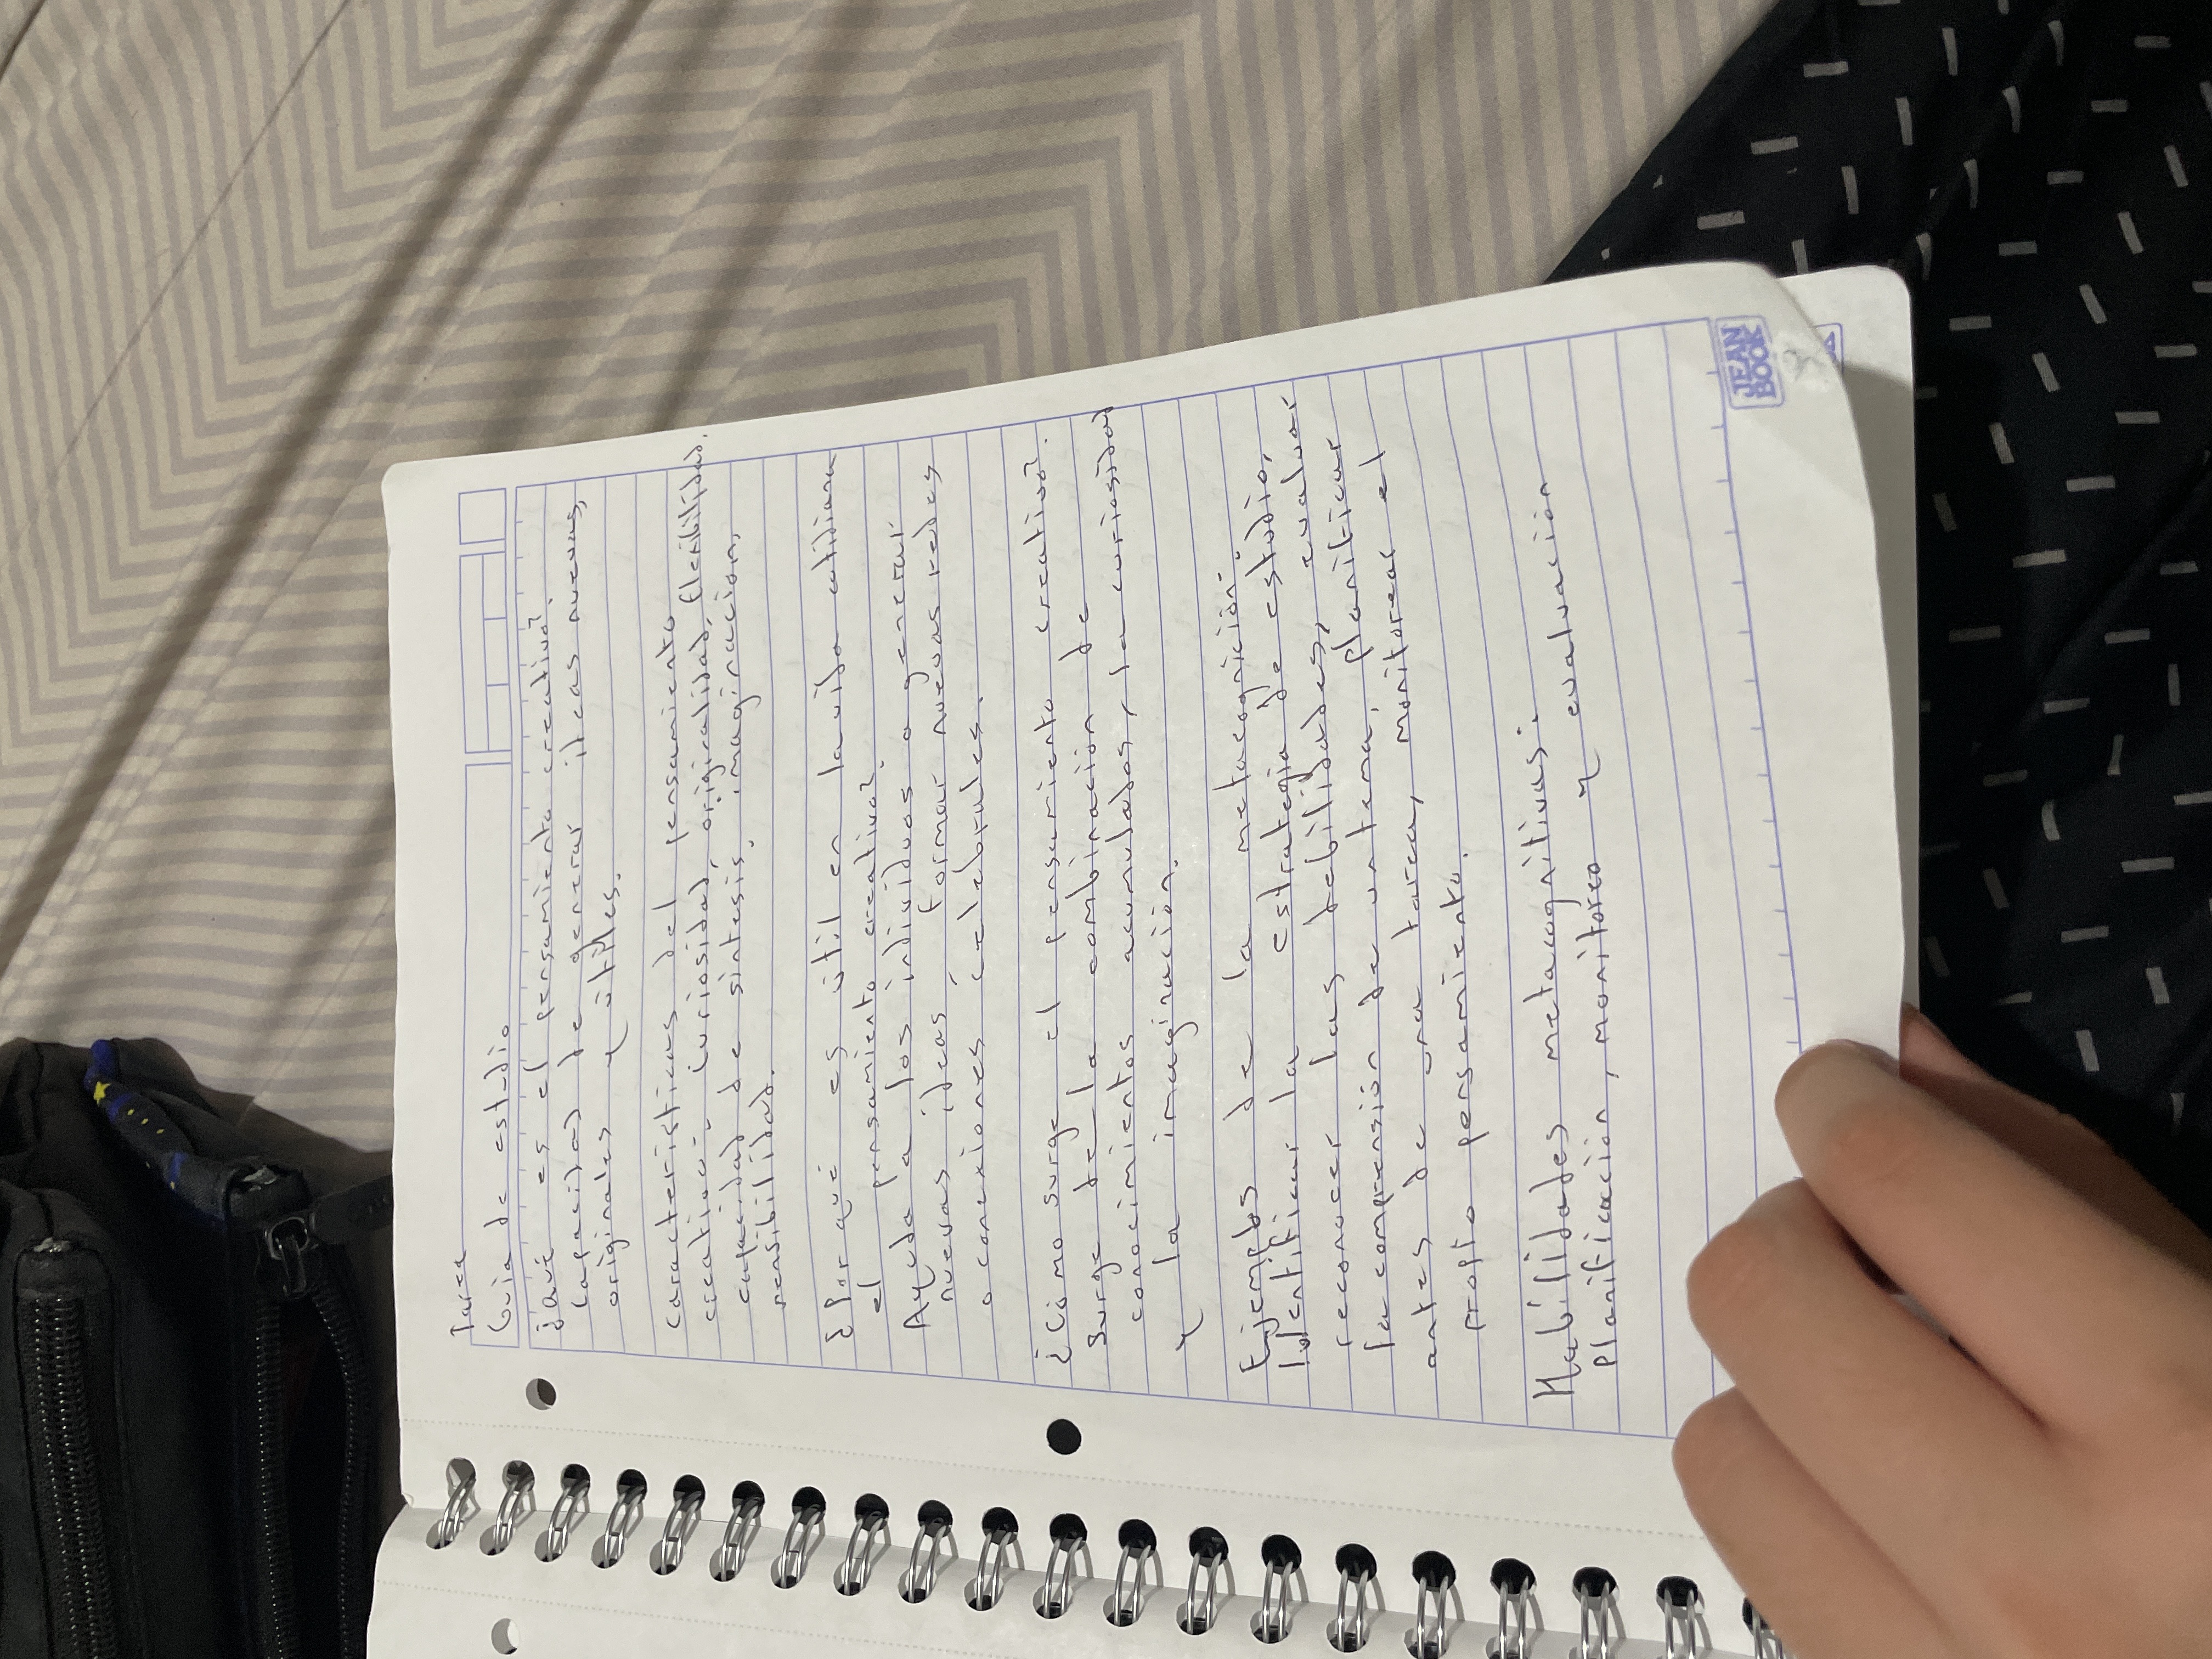 Tarea
Guia de estudio
¿Qué es el pensamiento creativo?
Capacidad de generar ideas nuevas,
originales y útiles.
Caracteristicas del pensamiento
creativo: curiosidad, originalidad, flexibilidad,
capacidad de sintesis, imaginacion,
sensibilidad.
¿Por qué es útil en la vida cotidiana
el pensamiento creativo?
Ayuda a los individuos a generar
nuevas ideas, formar nuevas redes
o conexiones celebrales.
¿Cómo surge el pensamiento creativo?
Surge de la combinacion de
conocimientos acumulados, la curiosidad
y la imaginación.
Ejemplos de la metacognición:
Identificar la estrategia de estudio,
reconocer las debilidades, evaluar
la comprensión de un tema, planificar
antes de una tarea, monitorear el
propio pensamiento.
Habilidades metacognitivas:
Planificacion, monitoreo y evaluacion
JEAN BOOK